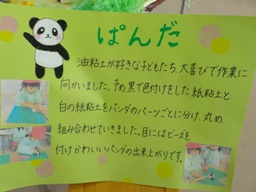 ぱんだ
油粘土が好きな子どもたち 大喜びで作業に
向かいました。予め黒で色付けをした紙粘土と
白の紙粘土をパンダのパーツごとに分け、丸め
組み合わせていきました。目にはビーズを
付け かわいいパンダの出来上がりです。